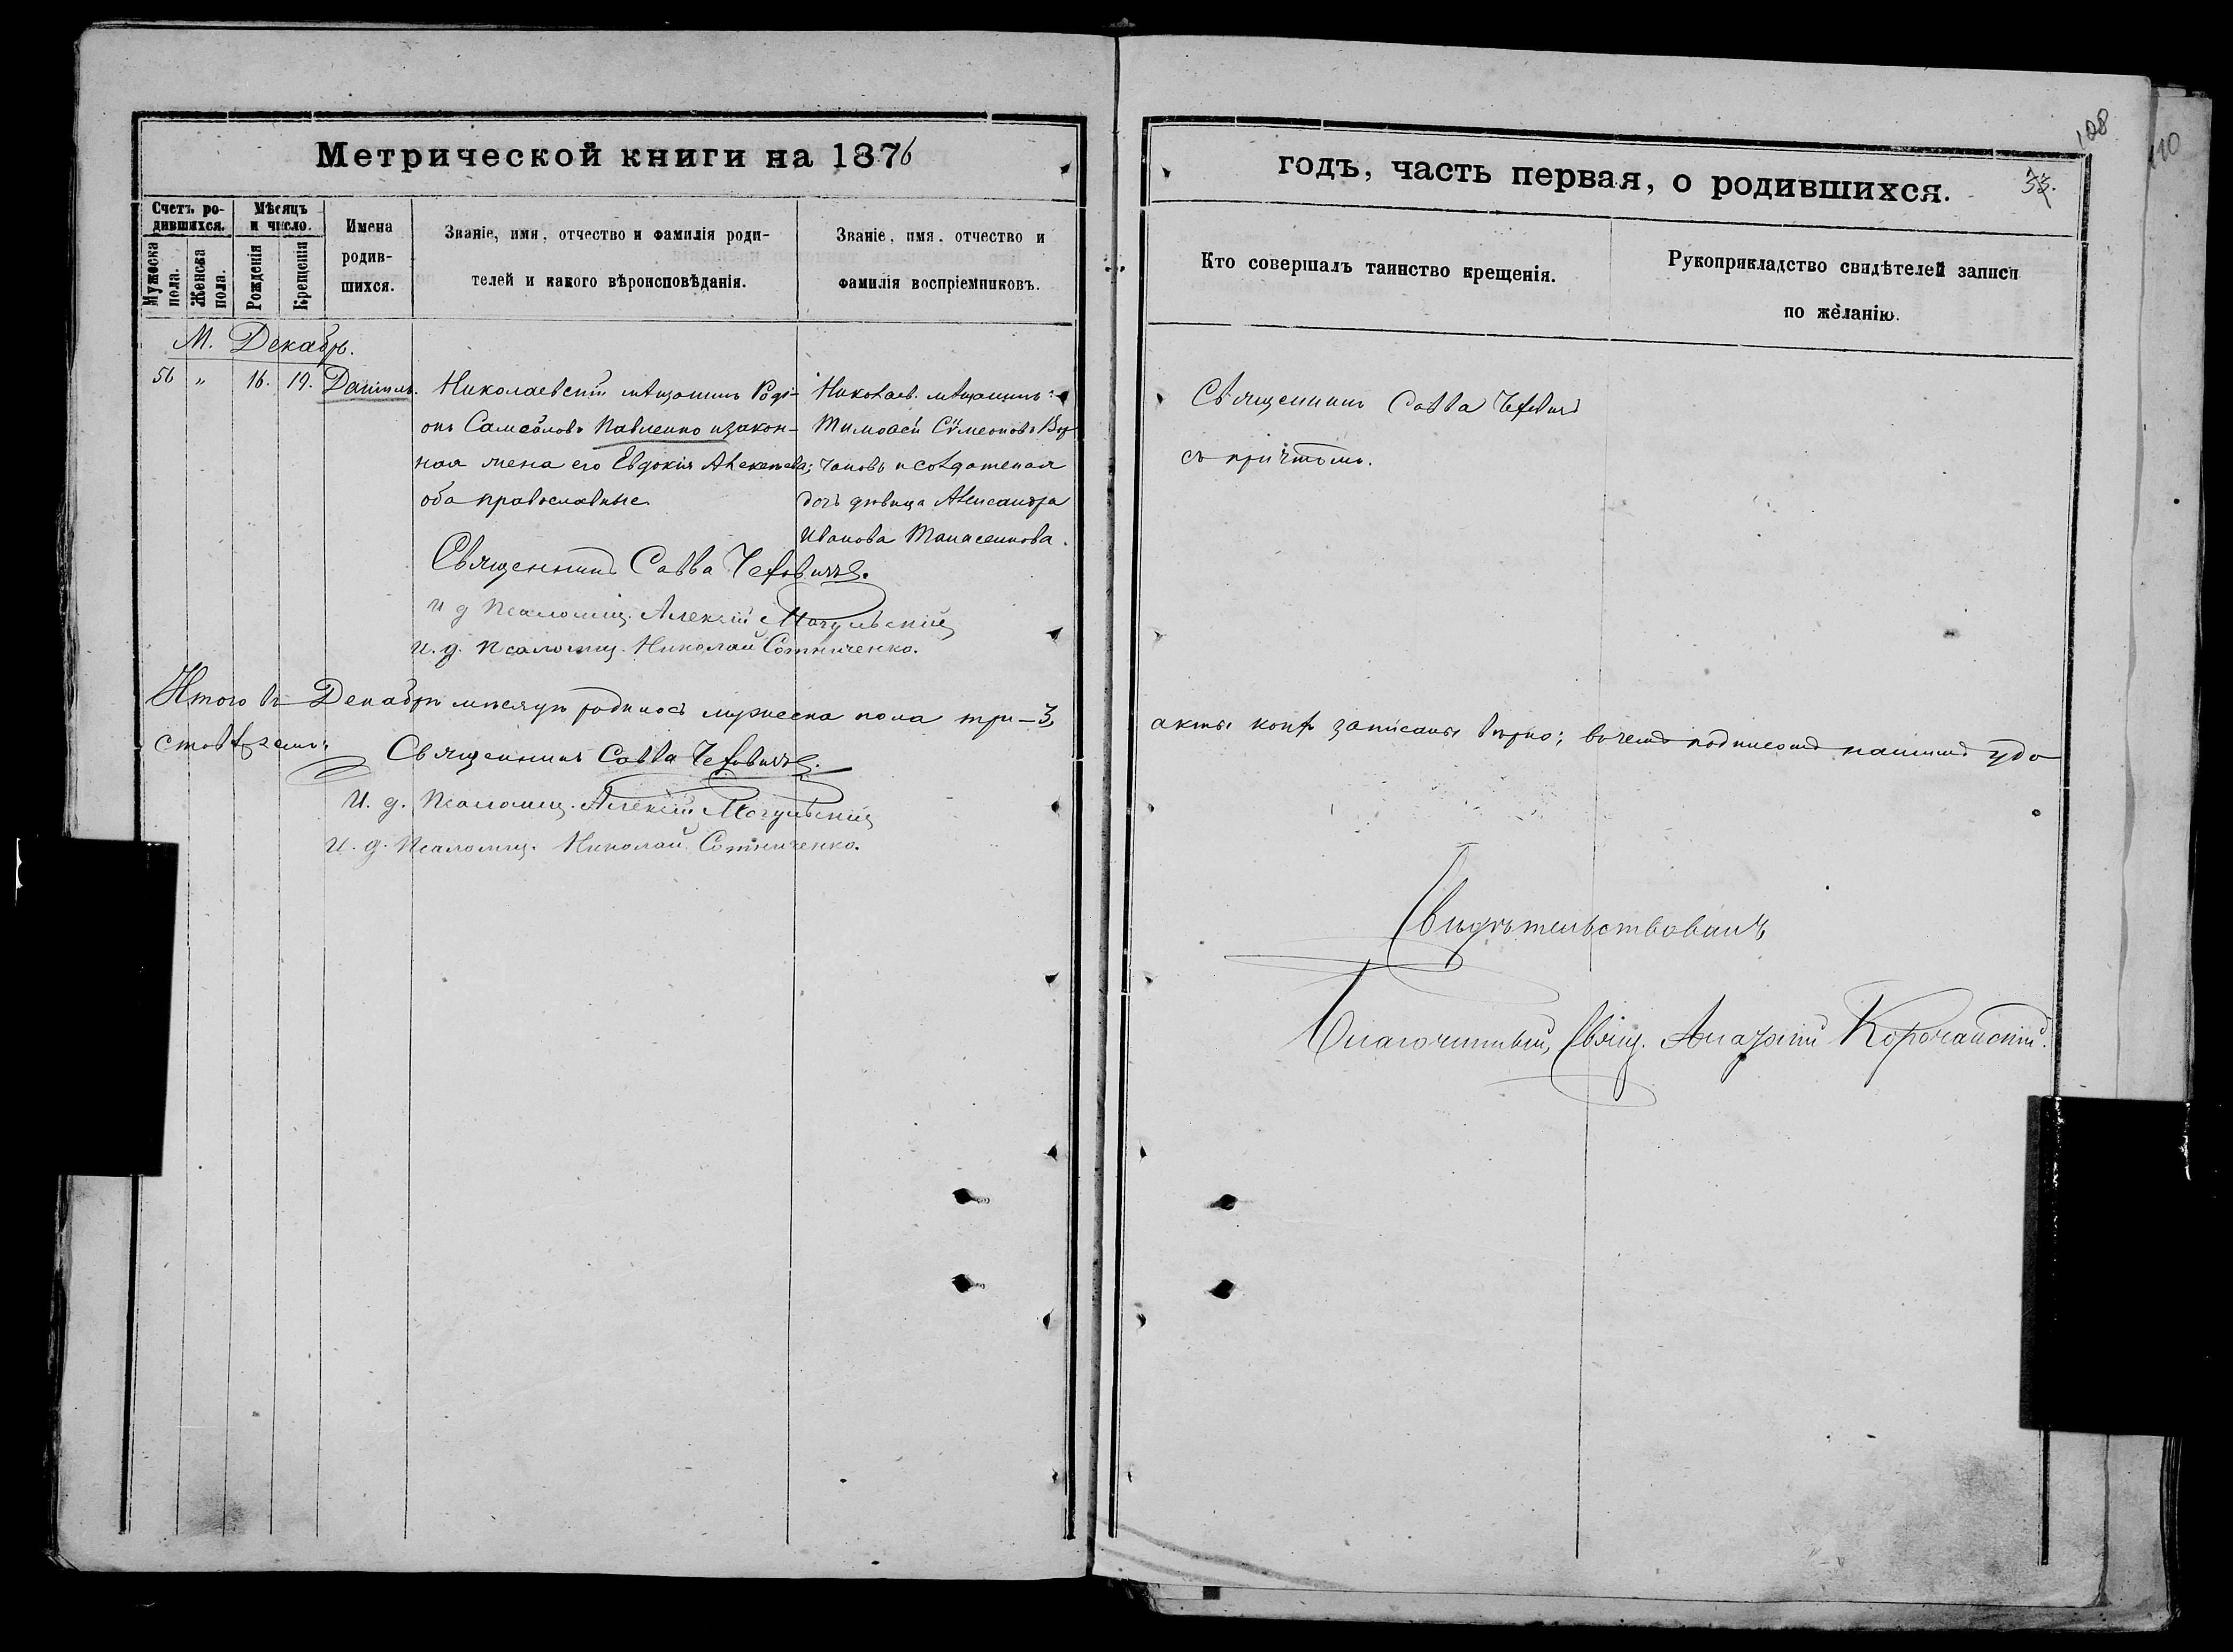 Метрической книги на 1876
Счетъ ро-
дившихся.
Мужеска пола.
Женска пола.
Мѣсяцъ
и число.
Рожденія
Крещенія
Имена
родив-
шихся.
Званіе, имя, отчество и фамилія роди-
телей и какого вѣроисповѣданія.
Званіе, имя, отчество и
фамилія воспріемниковъ.
М. Декабрь.
56 " 16. 19. Даніилъ.
Николаевскій мѣщанинъ Роді-
онъ Самсоновъ Павленко и закон-
ная жена его Евдокія Алексѣева;
оба православные
Николаев. мѣщанинъ:
Тимоѳей Сѵмеоновъ
и солдатская
дочь дѣвица Александра
Иванова
Священникъ Савва
и д Псаломщ. Алексій Могульскій
и. д. Псаломщ. Николай Сотниченко.
Итого въ Декабрѣ мѣсяцѣ родилось мужеска пола три – 3,
стовѣряемъ:
Священникъ Савва
И. д. Псаломщ. Алексій Могульскій
И. д. Псаломщ. Николай Сотниченко.
108
110
годъ, часть первая, о родившихся.
33.
Кто совершалъ таинство крещенія.
Рукоприкладство свидѣтелей записи
по желанію.
Священникъ Савва
съ причтомъ.
акты коихъ записаны вѣрно; въ чемъ подписомъ нашимъ удо
Свидѣтельствовалъ
Благочинный, Свящ. Корочанскій.